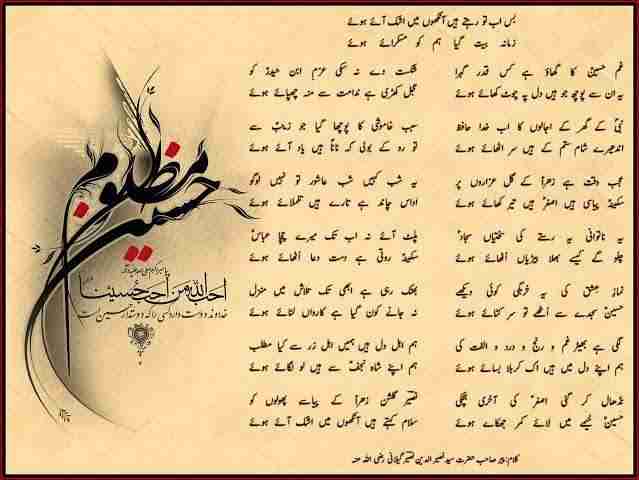 بس اب تو رہتے ہیں آنکھوں میں اشک آئے ہوئے
زمانہ بیت گیا ہم کو مسکرائے ہوئے
غم حسینؑ کا گھاؤ ہے کس قدر گہرا
یہ ان سے پوچھ جو ہیں دل پہ چوٹ کھائے ہوئے
شکست دے نہ سکی عزم ابن حیدرؑ کو
اجل کھڑی ہے ندامت سے منہ چھپائے ہوئے
نبیؐ کے گھر کے اجالوں کا اب خدا حافظ
اندھیرے شام ستم کے ہیں سر اٹھائے ہوئے
سبب خاموشی کا پوچھا گیا جو زینبؑ سے
تو رو کے بولی کہ ناناؐ ہیں یاد آئے ہوئے
عجب وقت ہے زہراؑ کے گل عزاروں پر
سکینہؑ پیاسی ہیں اصغرؑ ہیں تیر کھائے ہوئے
یہ شب کہیں شب عاشور تو نہیں لوگو
اداس چاند ہے تارے ہیں تلملائے ہوئے
یہ ناتوانی یہ رستے کی سختیاں سجادؑ
چلو گے کیسے بھلا بیڑیاں اٹھائے ہوئے
پلٹ آئے نہ اب تک میرے چچا عباسؑ
سکینہؑ روتی ہے دست دعا اٹھائے ہوئے
نماز عشق کی یہ کوئی دیکھے
حسینؑ سجدے سے اٹھے تو سر کٹائے ہوئے
بھٹک رہی ہے ابھی تک تلاش میں منزل
نہ جانے کون گیا ہے کارواں لٹائے ہوئے
لگی ہے بھیڑ غم و رنج و درد و الفت کی
ہم اپنے دل میں ہیں اک کربلا بسائے ہوئے
ہم اہل دل ہیں ہمیں اہل زر سے کیا مطلب
ہم اپنے شاہ نجفؑ سے ہیں لو لگائے ہوئے
نڈھال کر گئی اصغرؑ کی آخری ہچکی
حسینؑ خیمے میں لائے کمر جھکائے ہوئے
نصیرؔ گلشن زہراؑ کے پیاسے پھولوں کو
سلام کہتے ہیں آنکھوں میں اشک آئے ہوئے
کلام: پیر صاحب حضرت سید نصیر الدین نصیر گیلانی رضی اللہ عنہ
حسین مظلوم
احب الله من احب حسینا
خداوند دوست دارد کسی را که دوستدار حسین است